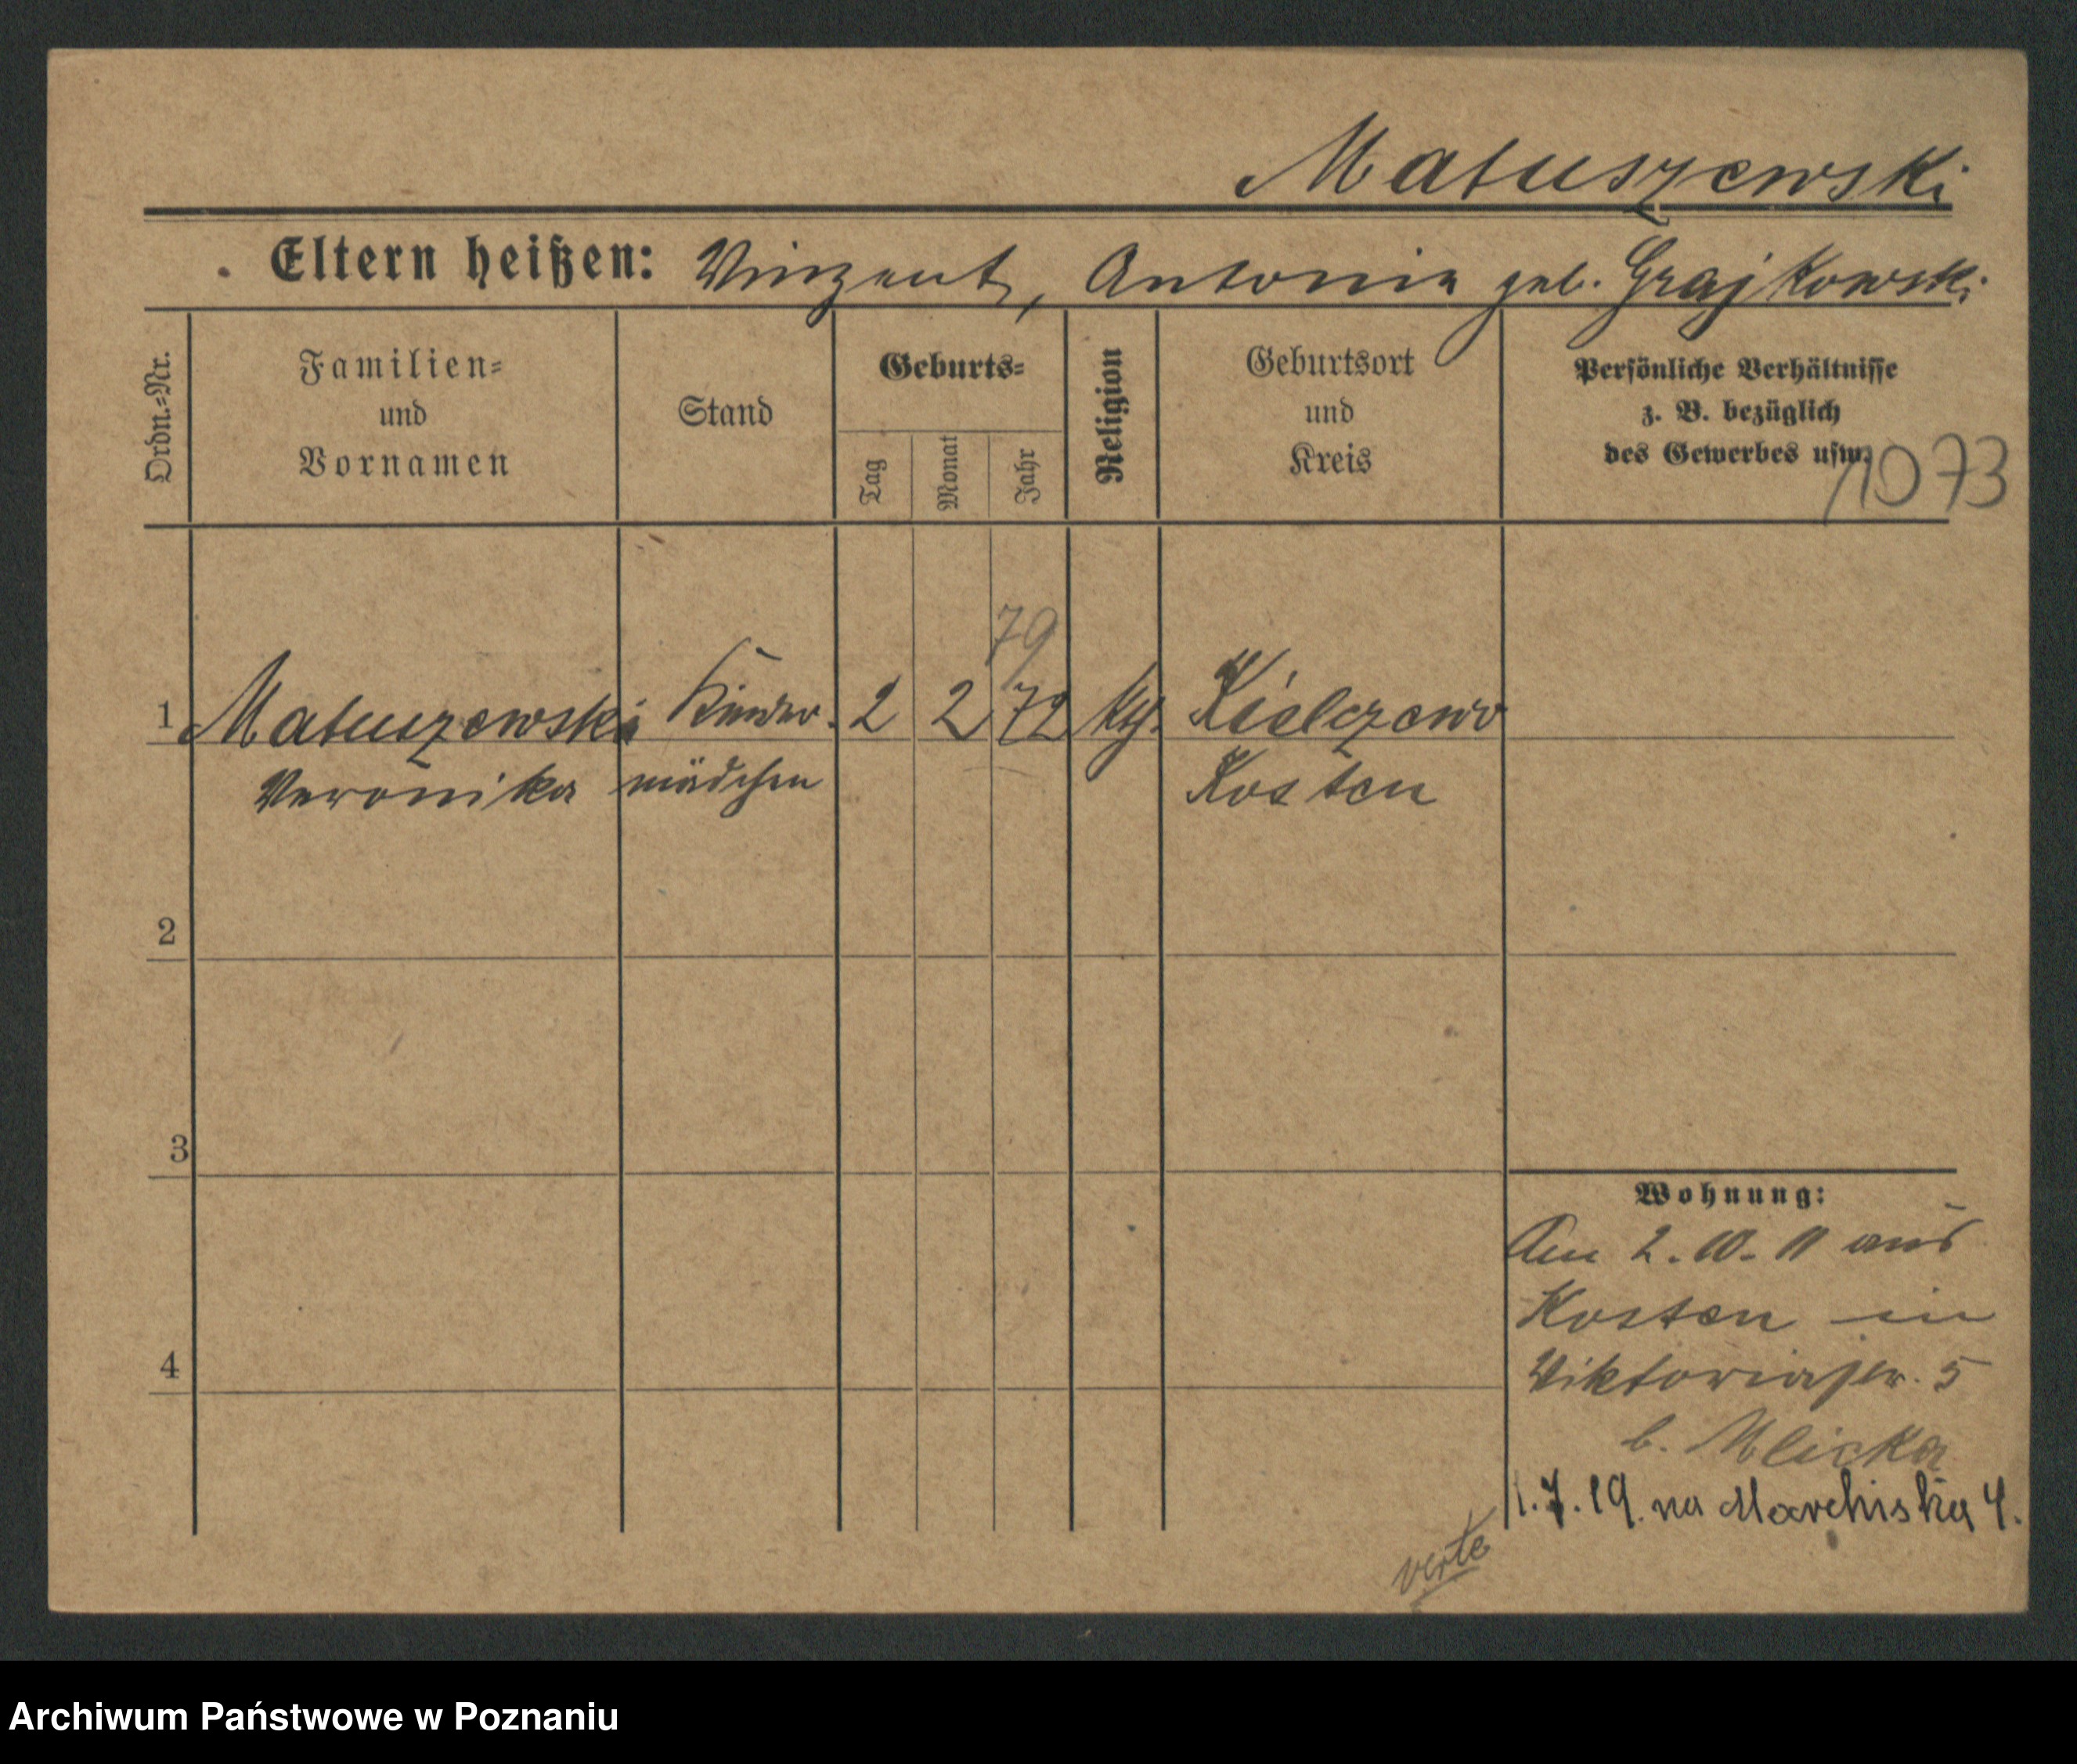 Matuszewski
Eltern heißen: Vinzent, Antonia geb. Grajkowski
Ordn.=Nr.
Familien=
und
Vornamen
Stand
Geburts=
Tag
Monat
Jahr
Religion
Geburtsort
und
Kreis
Persönliche Verhältnisse
z. B. bezüglich
des Gewerbes usw.
1073
79
1 Matuszewski Kinder- 2 2 72 Kielczewo
Veronika mädchen Kosten
2
3
4
Wohnung:
Am 2. 10. 11 aus
Kosten in
Viktoriastr. 5
b. Mlicka
1.7.19. na 4.
verte
Archiwum Państwowe w Poznaniu